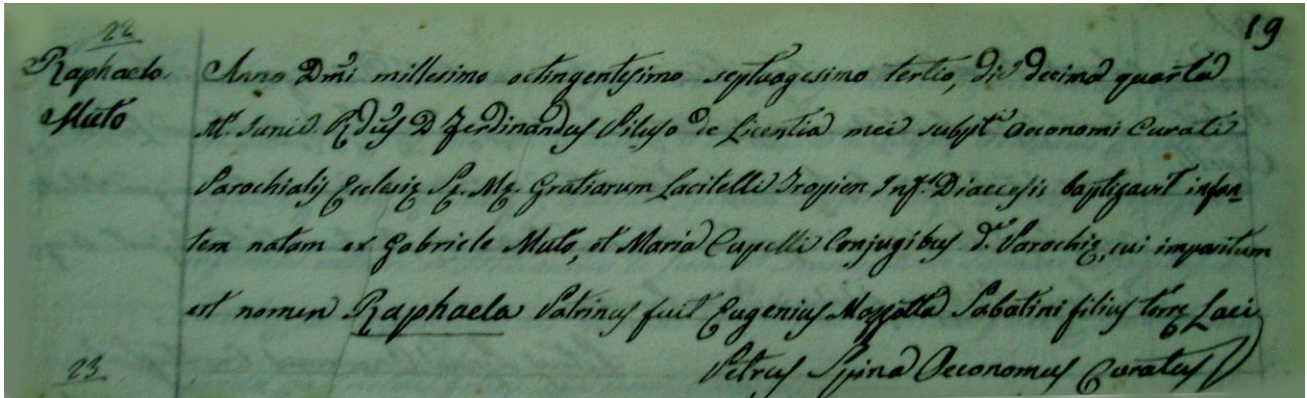 19
22
Raphaela
Muto
Anno Dm̃i millesimo octingentesimo septuagesimo tertio, die decima quarta
Ms. Junii Rdus D Ferdinandus Piluso de Licentia mei subspti Oeconomi Curati
Parochialis Eclesię Sę. Mę. Gratiarum Lacitelli Tropien Infs. Diaecesis baptizavit infan-
tem natam ex Gabriele Muto, et Maria Cupelli Conjugibus ds. Parochię, cui impositum
est nomen Raphaela Patrinus fuit Eugenius Mazzotta Sabatini filius terrę Laci
Petrus Spina Oeconomus Curatus
23